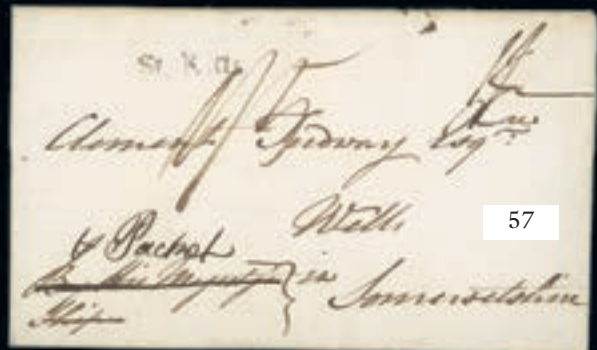 St. K. ds
Clement Tudway Esqr.
Wells
57
⅌ Packet
By His Majesty's
Ship
in
Somersetshire